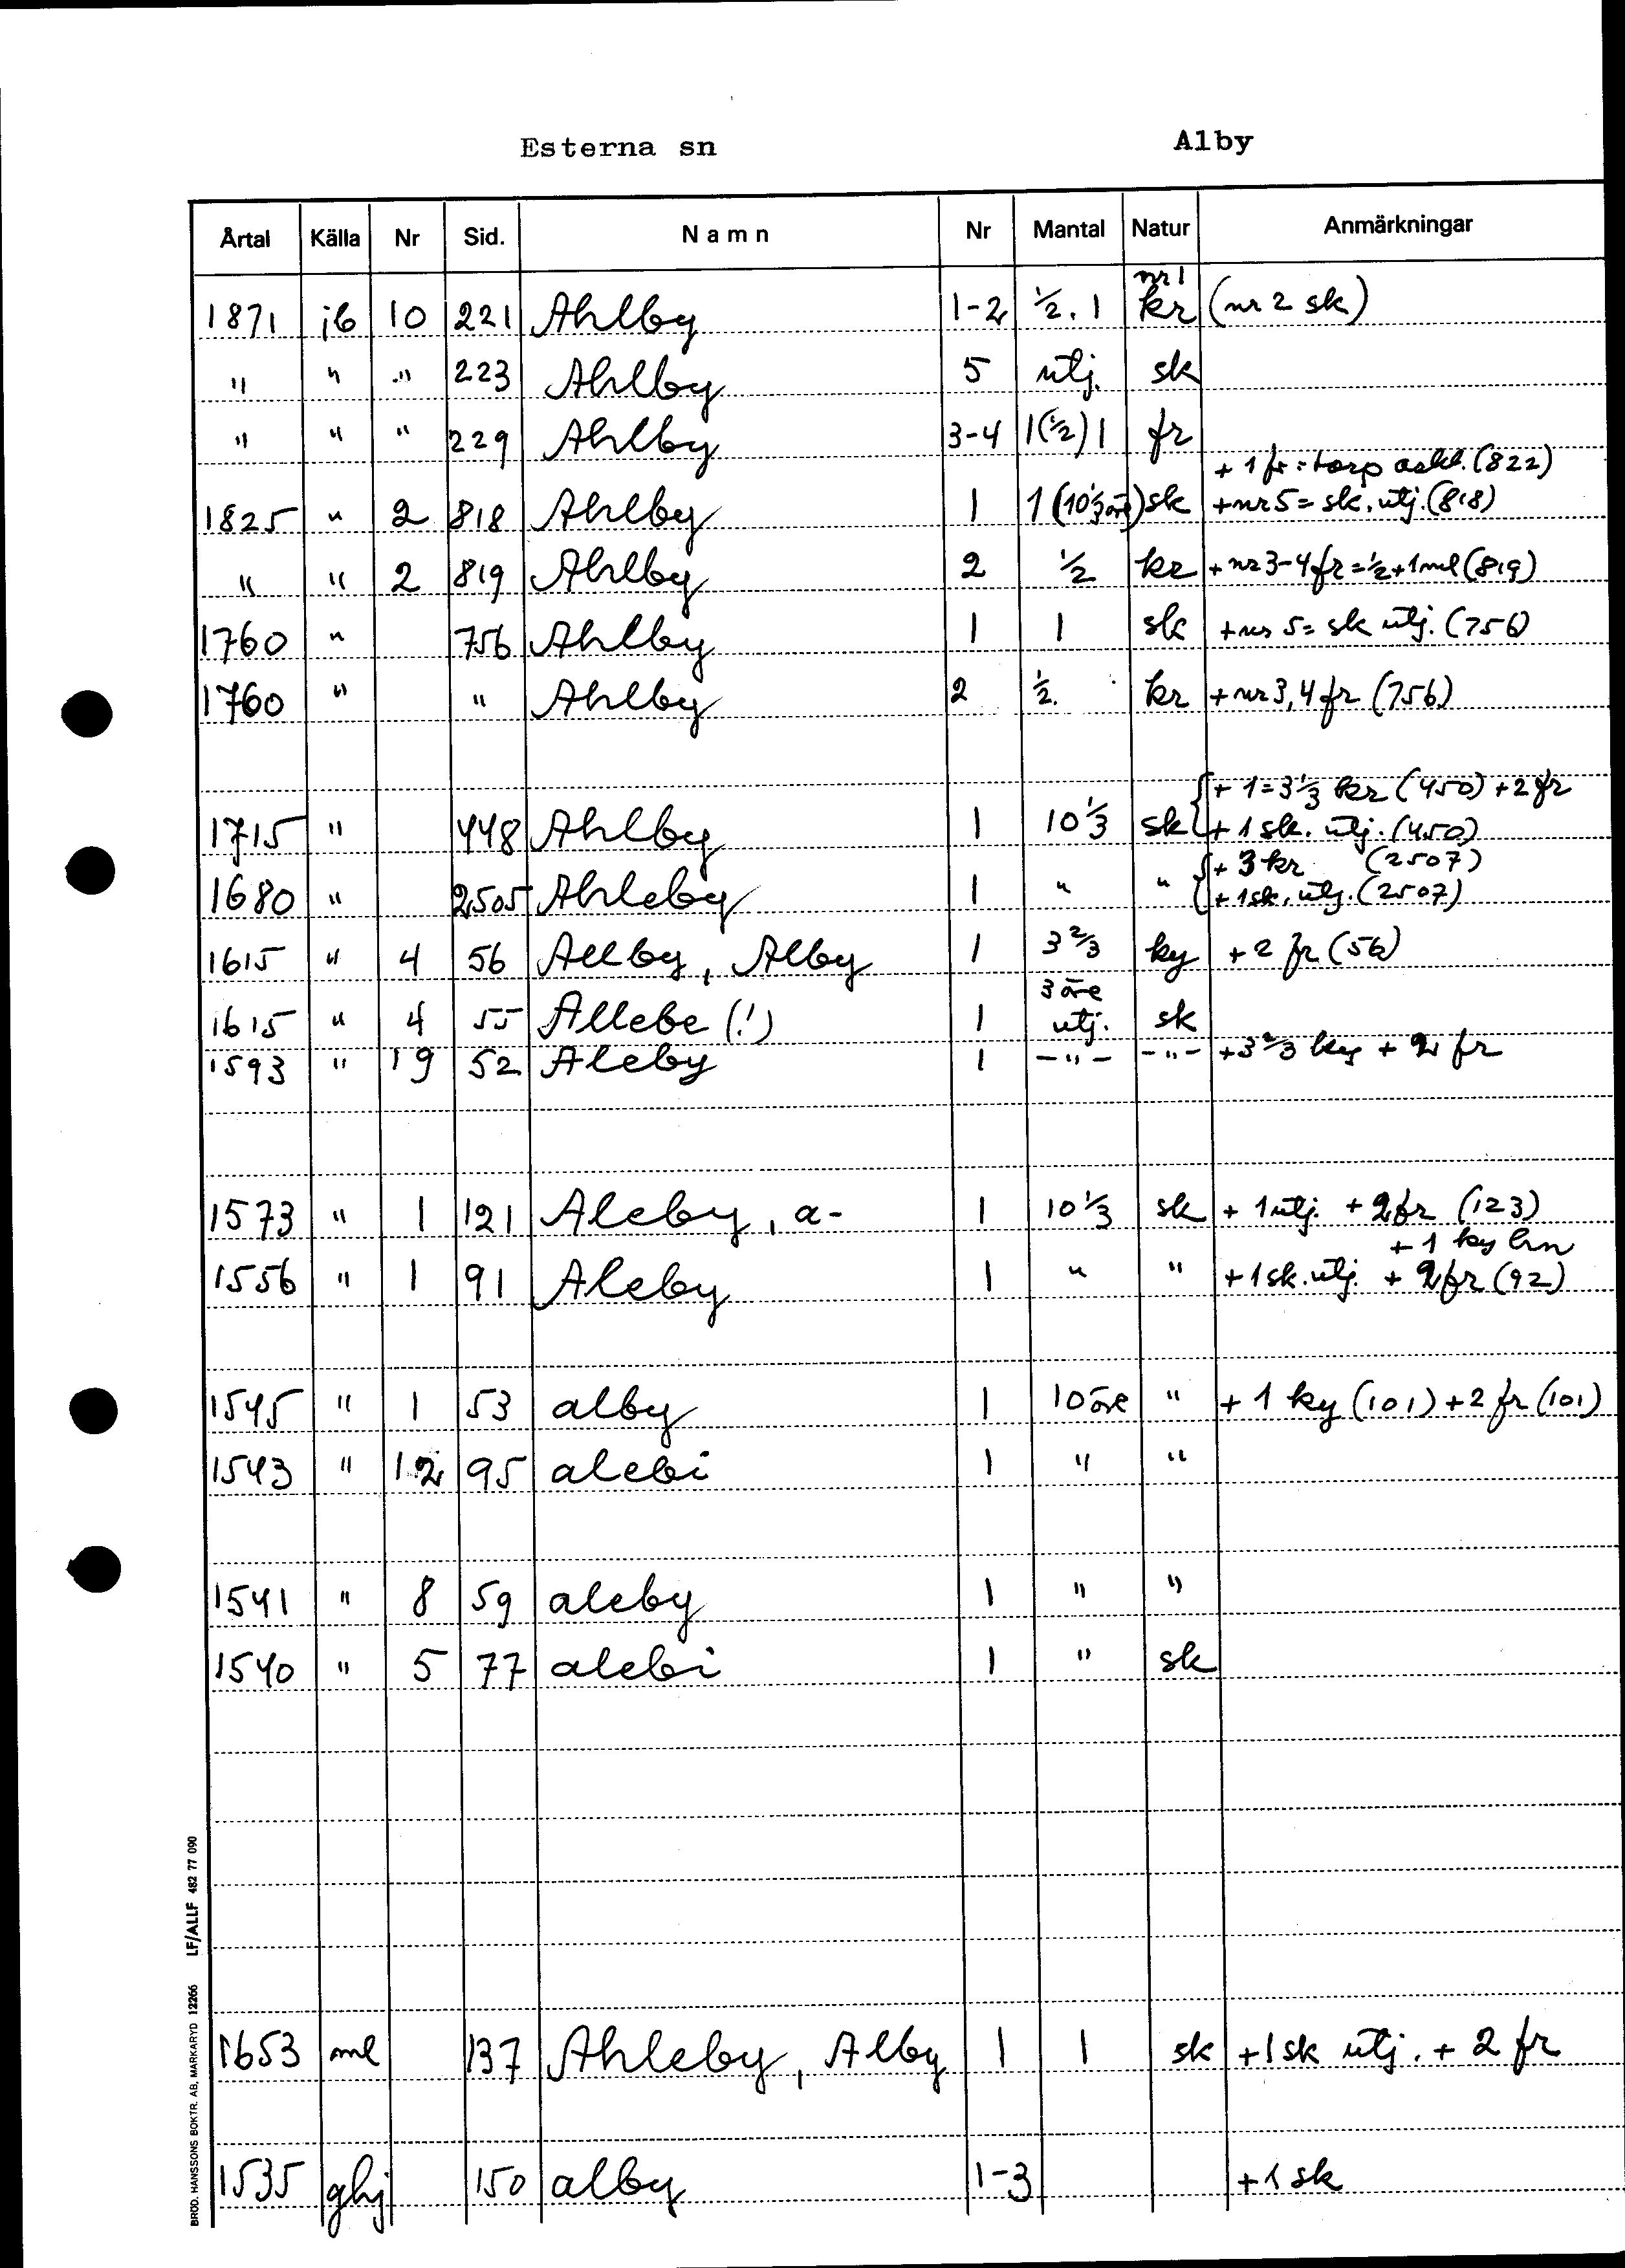 Esterna sn Alby
Årtal Källa Nr Sid. Namn Nr Mantal Natur Anmärkningar
nr 1
1871 jb 10 221 Ahlby 1-2 ½, 1 kr (nr 2 sk)
" " " 223 Ahlby 5 utj. sk
" " " 229 Ahlby 3-4 1(½) 1 fr
+ 1 fr = torp (822)
1825 " 2 818 Ahlby 1 1 (10⅓ öre) sk + nr 5 = sk. utj. (818)
" " 2 819 Ahlby 2 ½ kr + nr 3-4 fr = ½ + 1 ml (819)
1760 " 756 Ahlby 1 1 sk + nr 5 = sk utj. (756)
1760 " " Ahlby 2 ½. kr + nr 3, 4 fr (756)
+ 1 = 3⅓ kr (450) + 2 fr
1715 " 448 Ahlby 1 10⅓ sk + 1 sk. utj. (450)
+ 3 kr (2507)
1680 " 2505 Ahleby 1 " " + 1 sk. utj. (2507)
1615 " 4 56 Allby, Alby 1 3⅔ ky + 2 fr (56)
3 öre
1615 " 4 55 Allebe (!) 1 utj. sk
1593 " 19 52 Aleby 1 -"- -"- + 3⅔ ky + 2 fr
1573 " 1 121 Aleby, a- 1 10⅓ sk + 1 utj. + 2 fr (123)
+ 1 ky hn
1556 " 1 91 Aleby 1 " " + 1 sk. utj. + 2 fr (92)
1545 " 1 53 alby 1 10 öre " + 1 ky (101) + 2 fr (101)
1543 " 12 95 alebi 1 " "
1541 " 8 59 aleby 1 " "
1540 " 5 77 alebi 1 " sk
1653 ml 137 Ahleby, Alby 1 1 sk + 1 sk utj. + 2 fr
1535 ghj 150 alby 1-3 + 1 sk
BRÖD. HANSSONS BOKTR. AB, MARKARYD 12266 LF/ALLF 482 77 090